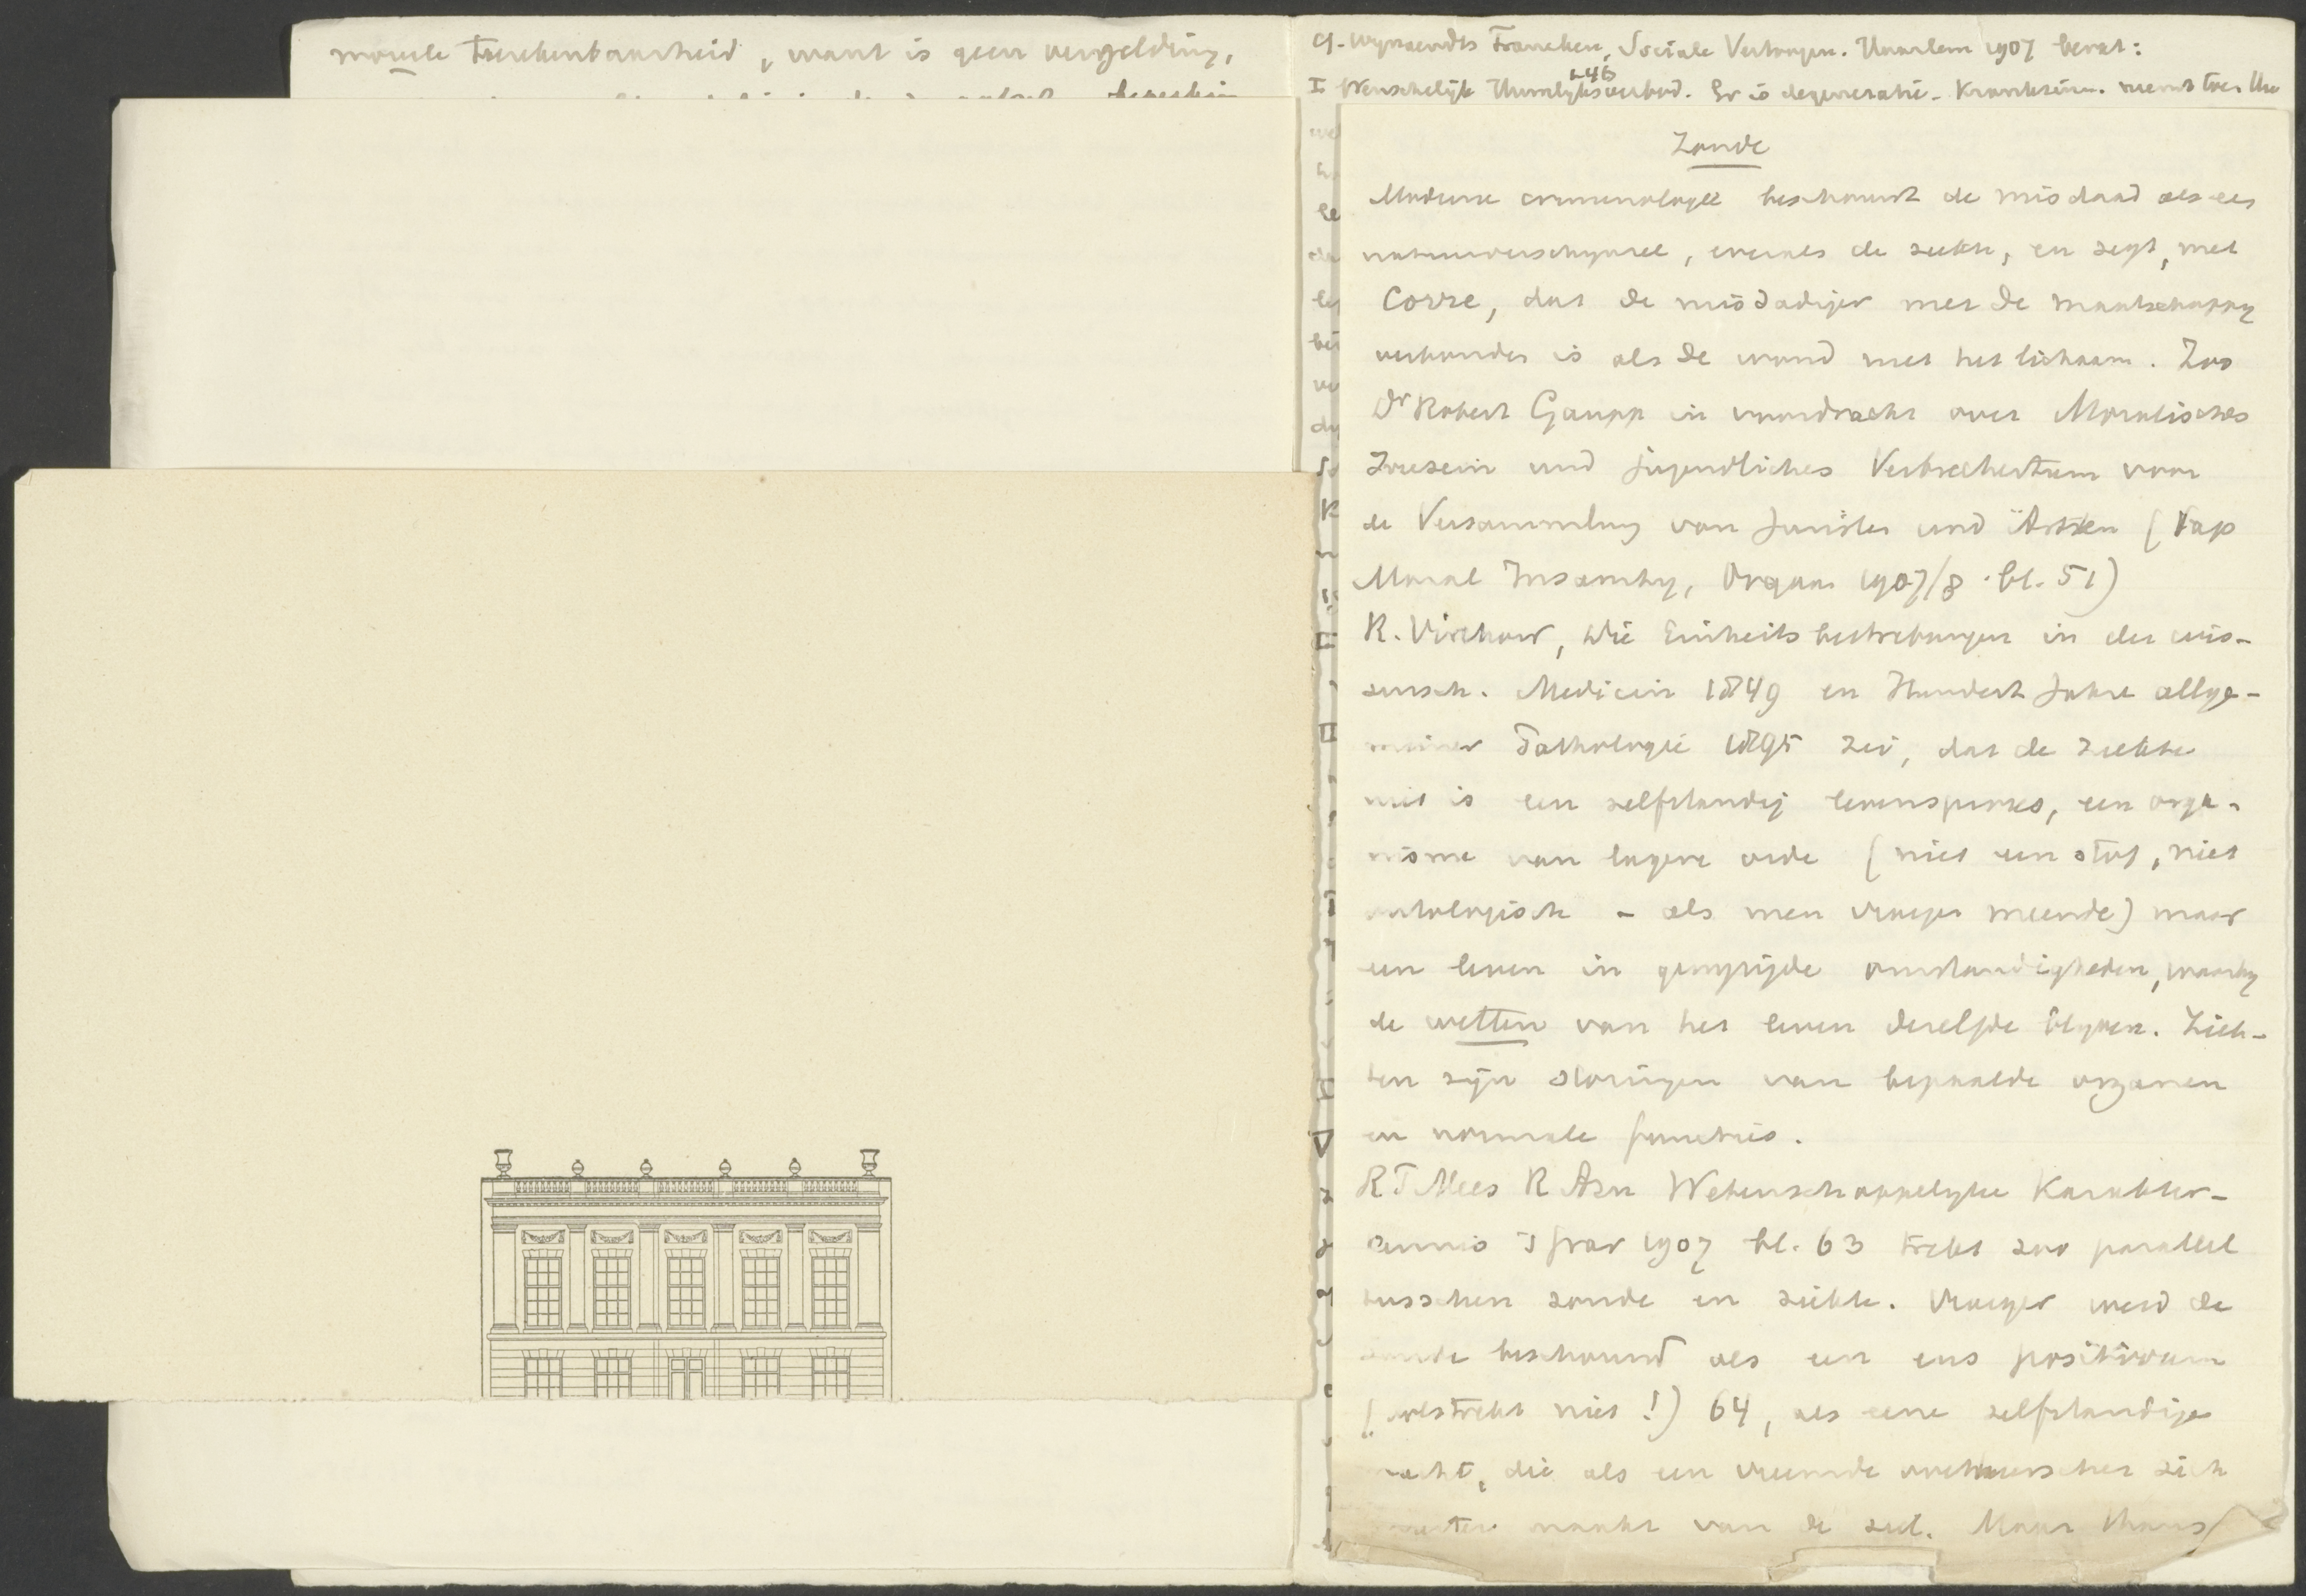 moreele toerekenbaarheid, want is geen vergelding,
C. Wynaendts Francken, Sociale Vertoogen. Haarlem 1907 bevat:
1-46
I Wenschelijk Huwelijksverbod. Er is degeneratie. Krankzinn. neemt toe. Uw
Zonde
Moderne criminologie beschouwt de misdaad als een
natuurverschynsel, evenals de ziekte, en zegt, met
Corre, dat de misdadiger met de maatschappy
verbonden is als de wond met het lichaam. Zoo
Dr Robert Gaupp in voordracht over Moralisches
Irresein und jugendliches Verbrechertum voor
de Versammlung von Juristen und Ärzten (
Moral Insanity, Orgaan 1907/8 . bl. 51)
R. Virchow, Die Einheitsbestrebungen in der wis-
sensch. Medicin 1849 en Hundert Jahre allge-
meiner Pathologie 1895 zei, dat de ziekte
niet is een zelfstandig levensproces, een orga-
nisme van lagere orde (niet een stof, niet
ontologisch - als men vroeger meende) maar
een leven in gewyzigde omstandigheden, waarby
de wetten van het leven dezelfde blyven. Ziek-
ten zijn storingen van bepaalde organen
en normale functies.
R T Mees R Azn Wetenschappelyke Karakter-
kennis 1907 bl. 63 trekt zoo parallel
tusschen zonde en ziekte. Vroeger werd de
zonde beschouwd als een ens positivum
(volstrekt niet!) 64, als eene zelfstandige
macht, die als een vreemde overheerscher zich
meester maakt van de ziel. Maar thans